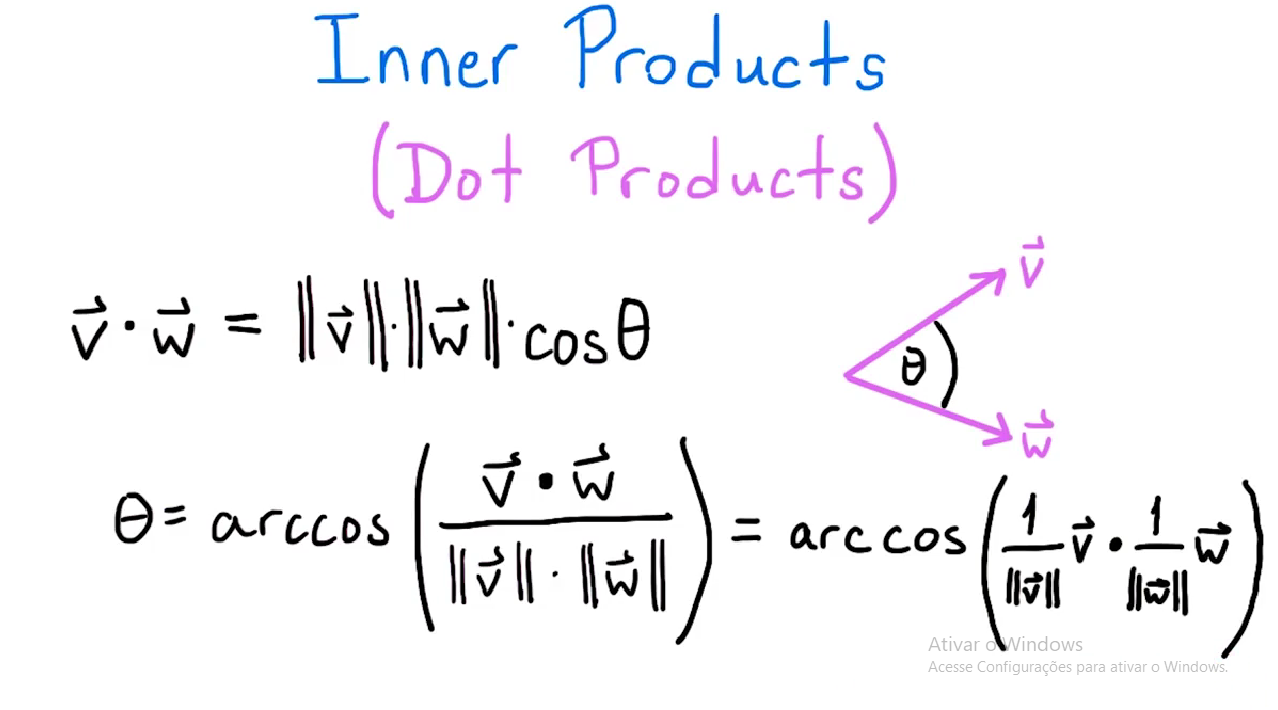 Inner Products
(Dot Products)
v⃗ · w⃗ = ||v⃗|| · ||w⃗|| · cos θ
v⃗
θ
w⃗
θ = arccos ( v⃗ · w⃗ / ||v⃗|| · ||w⃗|| ) = arccos ( 1/||v⃗|| v⃗ · 1/||w⃗|| w⃗ )
Ativar o Windows
Acesse Configurações para ativar o Windows.